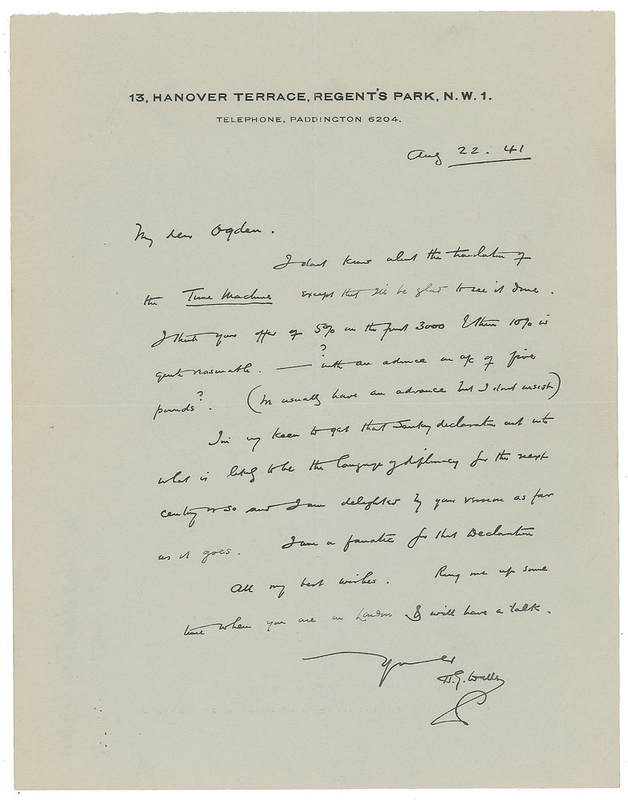 13, HANOVER TERRACE, REGENT'S PARK, N.W.1.
TELEPHONE, PADDINGTON 6204.
Aug 22. 41
My dear Ogden.
I dont know about the translation of
the Time Machine except that I'll be glad to see it done.
I think your offer of 5% on the first 3000 & then 10% is
quite reasonable. — ? with an advance on a/c of five
pounds?. (We usually have an advance but I dont insist)
I'm very keen to get that Sankey declaration out into
what is likely to be the language of diplomacy for the next
century or so and I am delighted by your version as far
as it goes. I am a fanatic for that Declaration
All my best wishes. Ring me up some
time when you are in London & will have a talk.
Yours
H.G. Wells